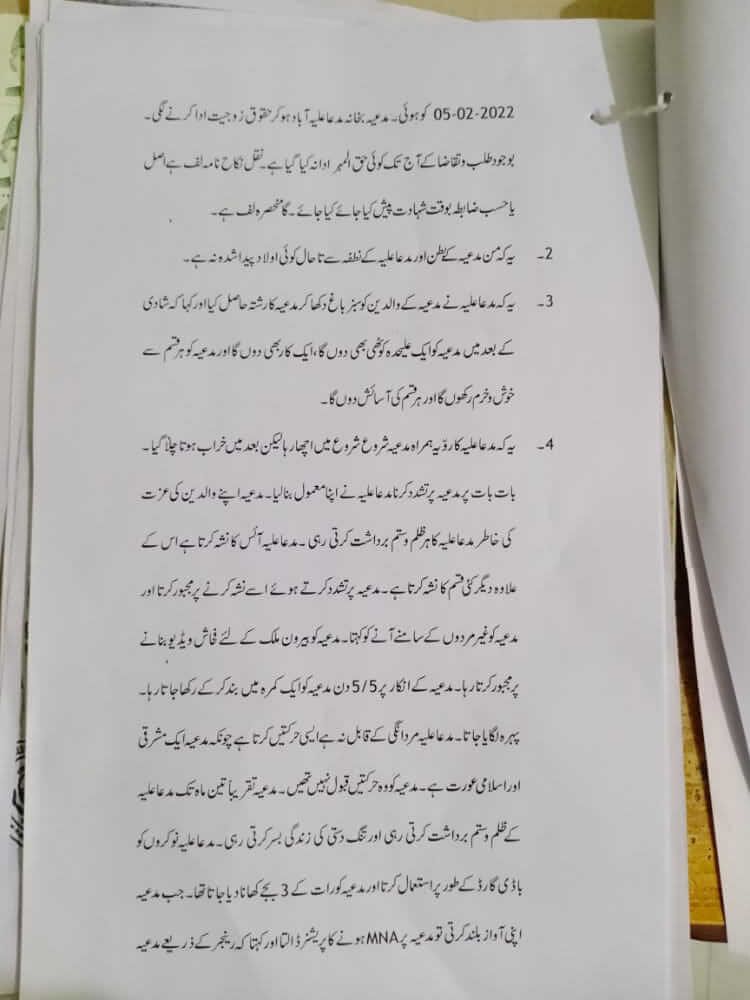 05-02-2022 کو ہوئی۔ مدعیہ بخانہ مدعاعلیہ آباد ہو کر حقوق زوجیت ادا کرنے لگی۔
بوجود طلب و تقاضا کے آج تک کوئی حق المہر ادا نہ کیا گیا ہے۔ نقل نکاح نامہ لف ہے اصل
یا حسب ضابطہ بوقت شہادت پیش کیا جائے کیا جائے۔ گا مختصرہ لف ہے۔
2۔ یہ کہ من مدعیہ کے بطن اور مدعاعلیہ کے نطفہ سے تا حال کوئی اولاد پیدا شدہ نہ ہے۔
3۔ یہ کہ مدعاعلیہ نے مدعیہ کے والدین کو سبز باغ دکھا کر مدعیہ کا رشتہ حاصل کیا اور کہا کہ شادی
کے بعد میں مدعیہ کو ایک علیحدہ کوٹھی بھی دوں گا، ایک کار بھی دوں گا اور مدعیہ کو ہر قسم سے
خوش و خرم رکھوں گا اور ہر قسم کی آسائش دوں گا۔
4۔ یہ کہ مدعاعلیہ کا روّیہ ہمراہ مدعیہ شروع شروع میں اچھا رہا لیکن بعد میں خراب ہوتا چلا گیا۔
بات بات پر مدعیہ پر تشدد کرنا مدعاعلیہ نے اپنا معمول بنا لیا۔ مدعیہ اپنے والدین کی عزت
کی خاطر مدعاعلیہ کا ہر ظلم و ستم برداشت کرتی رہی۔ مدعاعلیہ آئس کا نشہ کرتا ہے اس کے
علاوہ دیگر کئی قسم کا نشہ کرتا ہے۔ مدعیہ پر تشدد کرتے ہوئے اسے نشہ کرنے پر مجبور کرتا اور
مدعیہ کو غیر مردوں کے سامنے آنے کو کہتا۔ مدعیہ کو بیرون ملک کے لئے فحاش ویڈیو بنانے
پر مجبور کرتا رہا۔ مدعیہ کے انکار پر 5/5 دن مدعیہ کو ایک کمرہ میں بند کر کے رکھا جاتا رہا۔
پہرہ لگایا جاتا۔ مدعاعلیہ مردانگی کے قابل نہ ہے ایسی حرکتیں کرتا ہے چونکہ مدعیہ ایک مشرقی
اور اسلامی عورت ہے۔ مدعیہ کو وہ حرکتیں قبول نہیں تھیں۔ مدعیہ تقریباً تین ماہ تک مدعاعلیہ
کے ظلم و ستم برداشت کرتی رہی اور تنگ دستی کی زندگی بسر کرتی رہی۔ مدعاعلیہ نوکروں کو
باڈی گارڈ کے طور پر استعمال کرتا اور مدعیہ کو رات کے 3 بجے کھانا دیا جاتا تھا۔ جب مدعیہ
اپنی آواز بلند کرتی تو مدعیہ پر MNA ہونے کا پریشنر ڈالتا اور کہتا کہ رینجر کے ذریعے مدعیہ